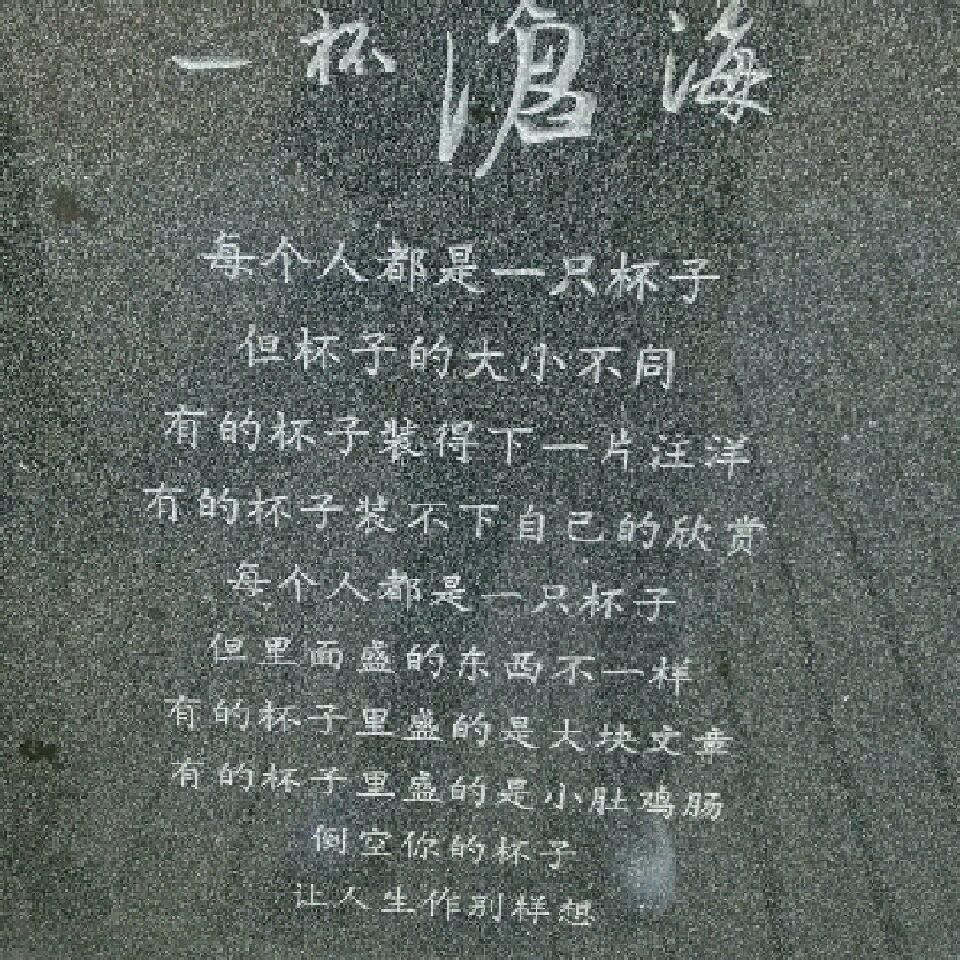 一杯滄海
每个人都是一只杯子
但杯子的大小不同
有的杯子装得下一片汪洋
有的杯子装不下自己的欣赏
每个人都是一只杯子
但里面盛的东西不一样
有的杯子里盛的是大块文章
有的杯子里盛的是小肚鸡肠
倒空你的杯子
让人生作别样想